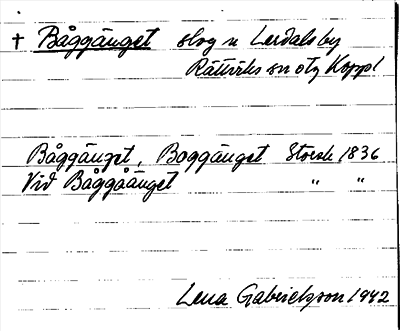 † Båggänget slog n Lerdals by
Rättviks sn otg Koppl
Båggänget, Boggänget Storsk 1836
Vid Båggåänget " "
Lena Gabrielsson 1942